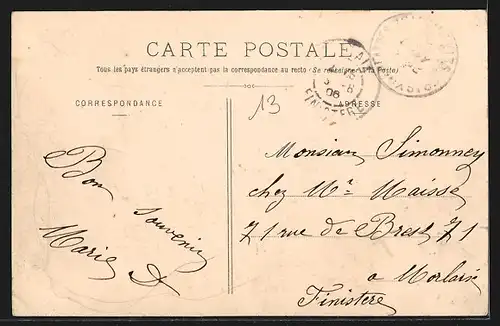 CARTE POSTALE
Tous les pays étrangers n'acceptent pas la correspondance au recto (Se renseigner à la Poste)
CORRESPONDANCE
13
ADRESSE
06
FINISTERE
Bon
Souvenir
Marie
Monsieur Simonney
chez Mr Maisse
71 rue de Brest 71
a Morlaix
Finistere